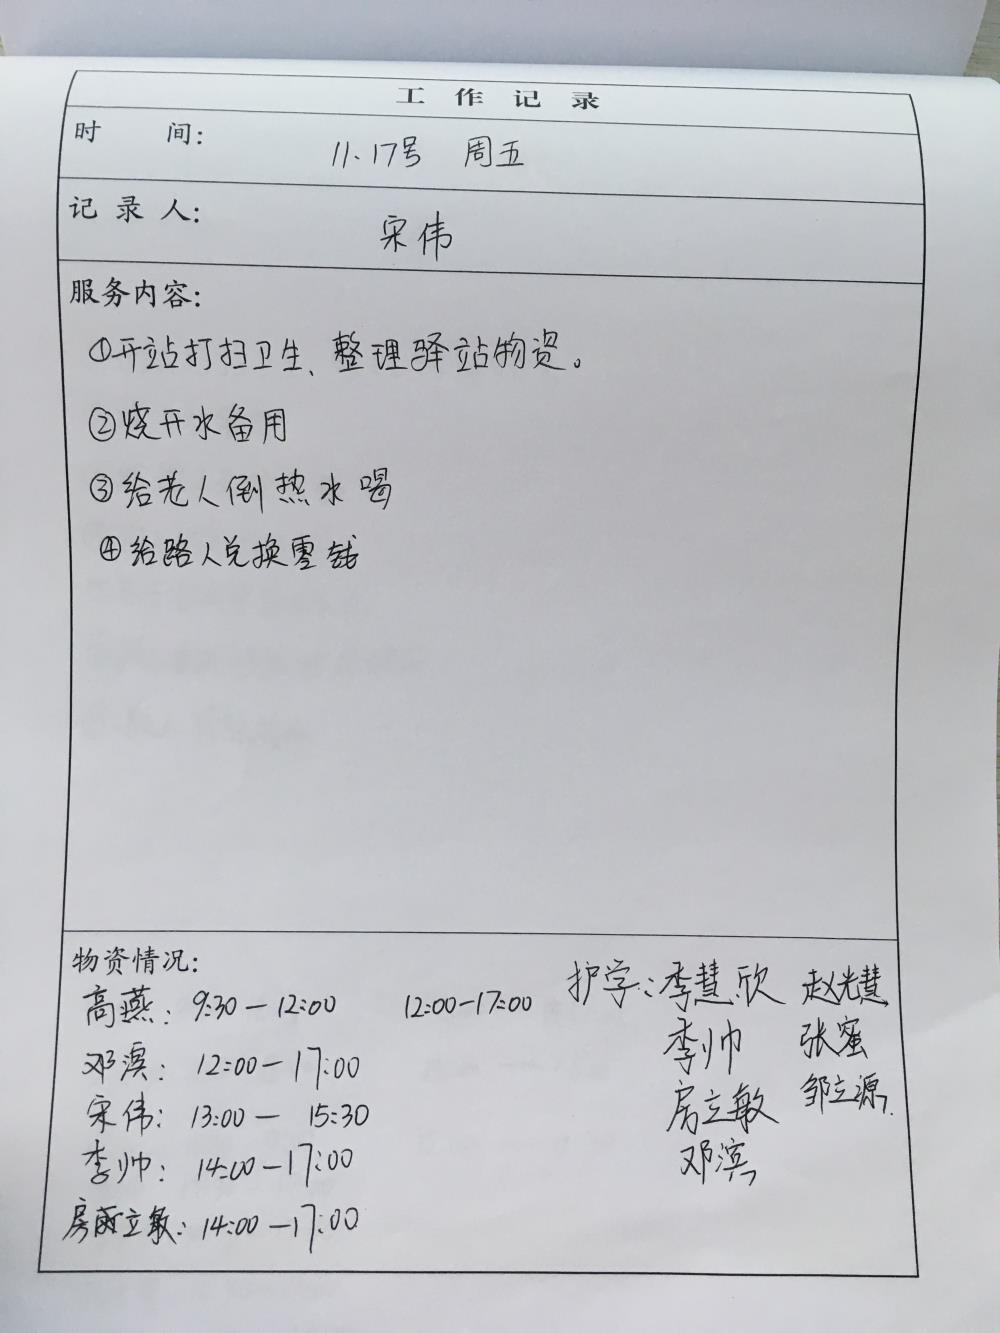 工作记录
时 间： 11.17号 周五
记录人： 宋伟
服务内容：
①开站打扫卫生、整理驿站物资。
②烧开水备用
③给老人倒热水喝
④给路人兑换零钱
物资情况：
高燕：9:30—12:00 12:00—17:00
邓滨：12:00—17:00
宋伟：13:00— 15:30
李帅：14:00—17:00
房立敏：14:00—17:00
护学：李慧欣 赵光慧
李帅 张蜜
房立敏 邹立源
邓滨